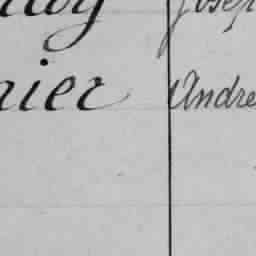 Josep
nier Andre